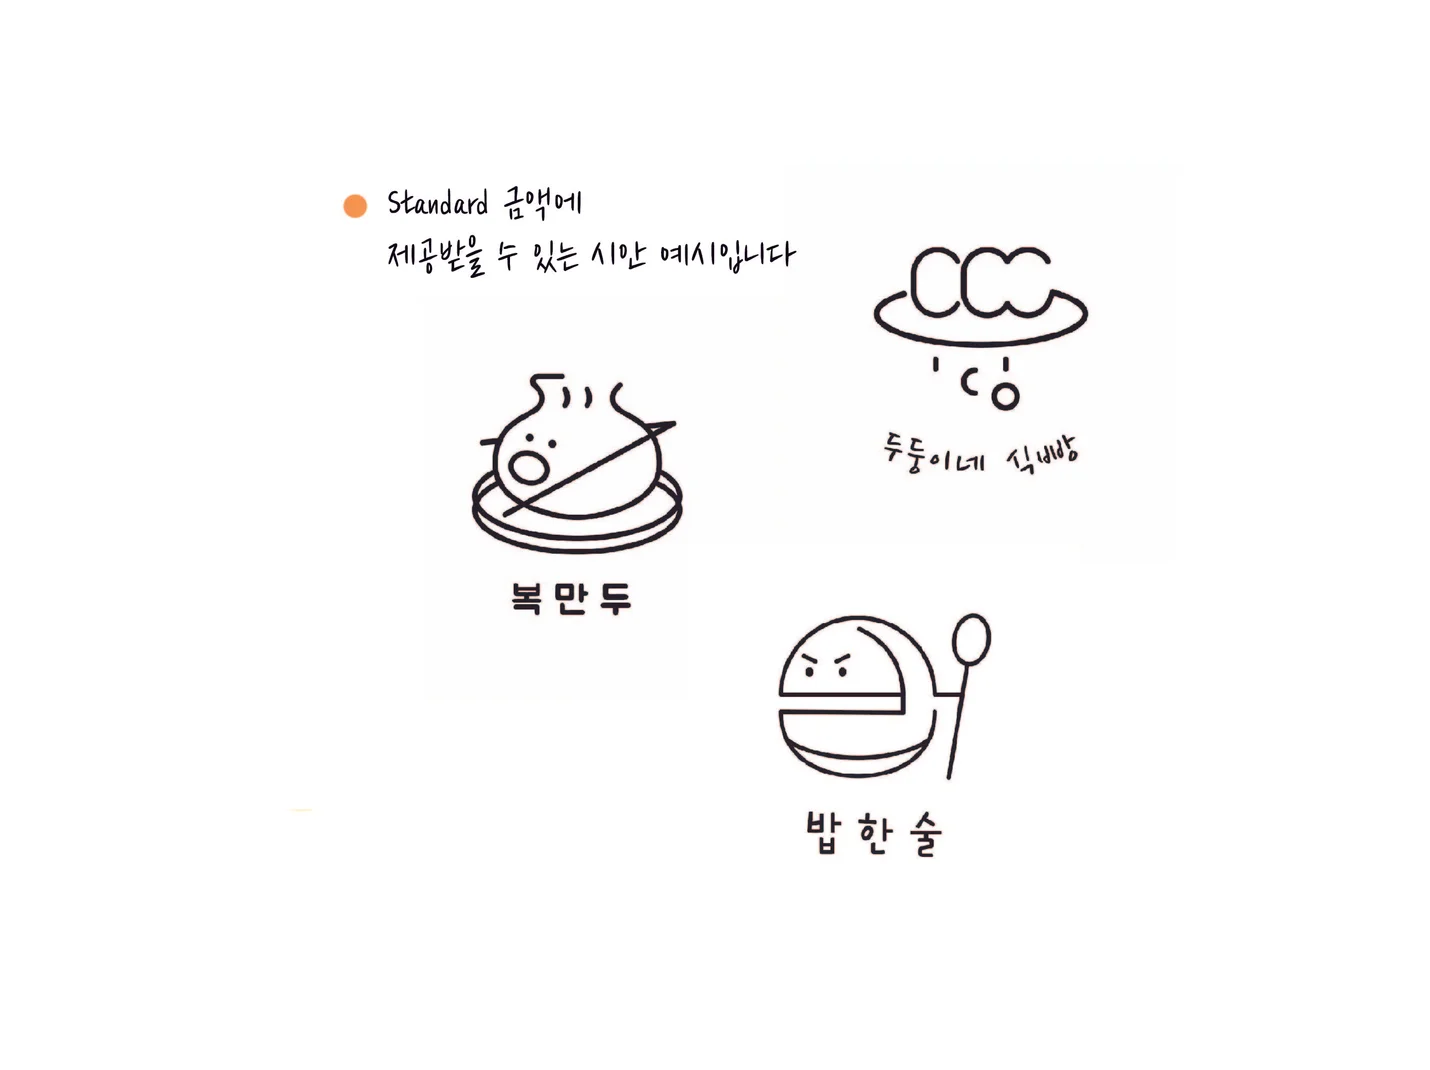 Standard 금액에
제공받을 수 있는 시안 예시입니다
두둥이네 식빵
복만두
밥한술